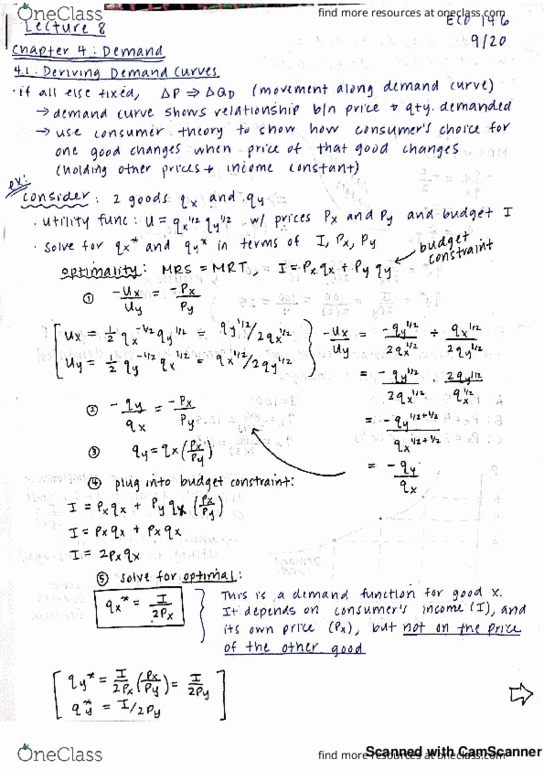 OneClass
find more resources at oneclass.com
find more resources at oneclass.com
Lecture 8
ECO 146
9/20
Chapter 4: Demand
4.1: Deriving Demand Curves
· if all else fixed, ΔP ⇒ ΔQD (movement along demand curve)
→ demand curve shows relationship b/n price + qty. demanded
→ use consumer theory to show how consumer's choice for
one good changes when price of that good changes
(holding other prices + income constant)
ex:
Consider: 2 goods qx and qy
· utility func: U = qx^1/2 qy^1/2 w/ prices Px and Py and budget I
· solve for qx* and qy* in terms of I, Px, Py
budget constraint
optimality: MRS = MRT, I = Px qx + Py qy
① -Ux/Uy = -Px/Py
Ux = 1/2 qx^-1/2 qy^1/2 = qy^1/2/2qx^1/2
Uy = 1/2 qy^-1/2 qx^1/2 = qx^1/2/2qy^1/2
-Ux/Uy = -qy^1/2/2qx^1/2 ÷ qx^1/2/2qy^1/2
= -qy^1/2/2qx^1/2 · 2qy^1/2/qx^1/2
= -qy^1/2+1/2/qx^1/2+1/2
= -qy/qx
② -qy/qx = -Px/Py
③ qy = qx (Px/Py)
④ plug into budget constraint:
I = Px qx + Py qx (Px/Py)
I = Px qx + Px qx
I = 2Px qx
⑤ solve for optimal:
qx* = I/2Px
This is a demand function for good x.
It depends on consumer's income (I), and
its own price (Px), but not on the price
of the other good
qy* = I/2Px (Px/Py) = I/2Py
qy* = I/2Py
Scanned with CamScanner
OneClass
find more resources at oneclass.com